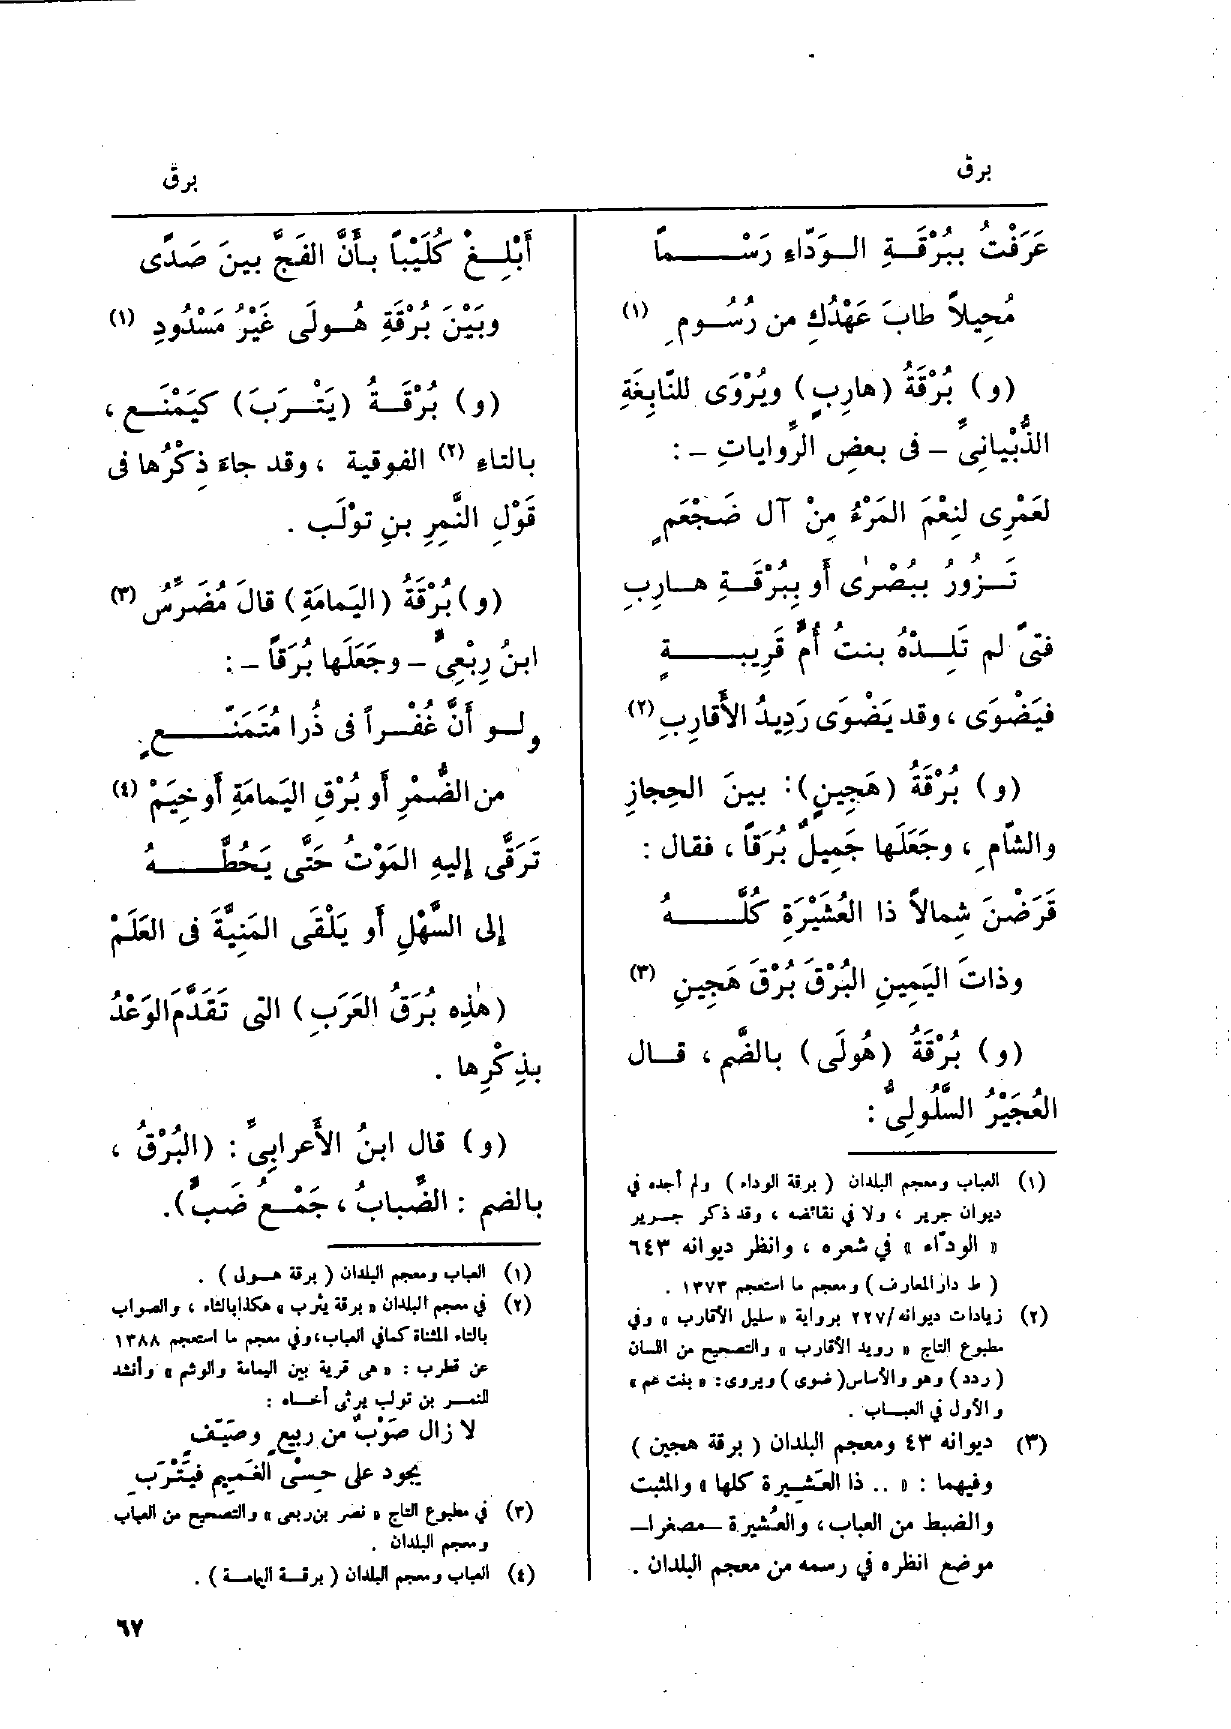 برق
برق
عَرَفْتُ ببُرْقَةِ الوَدّاءِ رَسْماً
مُحِيلاً طابَ عَهْدُكِ من رُسُومٍ (١)
(و) بُرْقَةُ (هارِبٍ) ويُرْوَى للنّابِغَةِ
الذُّبْيانِيِّ – فى بعضِ الرِّواياتِ – :
لعَمْرِى لنِعْمَ المَرْءُ مِنْ آل ضَجْعَمٍ
تَزُورُ ببُصْرَى أو ببُرْقَةِ هارِبِ
فتىً لم تَلِدْهُ بنتُ أُمٍّ قَرِيبةٍ
فيَضْوَى ، وقد يَضْوَى رَدِيدُ الأَقارِبِ (٢)
(و) بُرْقَةُ (هَجِينٍ): بينَ الحِجازِ
والشّامِ ، وجَعَلَها جَمِيلٌ بُرَقاً ، فقال :
قَرَضْنَ شِمالاً ذا العُشَيْرَةِ كُلَّهُ
وذاتَ اليَمِينِ البُرْقَ بُرْقَ هَجِينِ (٣)
(و) بُرْقَةُ (هُولَى) بالضَّم ، قال
العُجَيْرُ السَّلُولِىُّ :
(١) العباب ومعجم البلدان ( برقة الوداء ) ولم أجده في
ديوان جرير ، ولا في نقائضه ، وقد ذكر جرير
« الودّاء » في شعره ، وانظر ديوانه ٦٤٣
( ط دار المعارف ) ومعجم ما استعجم ١٣٧٣ .
(٢) زيادات ديوانه/٢٢٧ برواية « سليل الأقارب » وفي
مطبوع التاج « رويد الأقارب » والتصحيح من اللسان
( ردد ) وهو والأساس( ضوى ) ويروى: « بنت عم »
والأول في العباب .
(٣) ديوانه ٤٣ ومعجم البلدان ( برقة هجين )
وفيهما : « .. ذا العَشِيرة كلها » والمثبت
والضبط من العباب ، والعُشيرة –مصغرا–
موضع انظره في رسمه من معجم البلدان .
أَبْلِغْ كُلَيْباً بأَنَّ الفَجَّ بينَ صَدًى
وبَيْنَ بُرْقَةِ هُولَى غَيْرُ مَسْدُودِ (١)
(و) بُرْقَةُ (يَتْرَبَ) كيَمْنَع ،
بالتاءِ (٢) الفوقية ، وقد جاءَ ذِكْرُها فى
قَوْلِ النَّمِرِ بنِ تولَب .
(و) بُرْقَةُ (اليَمامَةِ) قالَ مُضَرِّسُ (٣)
ابنُ رِبْعِىٍّ – وجَعَلَها بُرَقاً – :
ولو أَنَّ غُفْراً فى ذُرا مُتَمَنِّعٍ
من الضُّمْرِ أَو بُرْقِ اليَمامَةِ أَو خِيَمْ (٤)
تَرَقَّى إليهِ المَوْتُ حَتَّى يَحُطَّهُ
إلى السَّهْلِ أَو يَلْقَى المَنِيَّةَ فى العَلَمْ
(هٰذِه بُرَقُ العَرَبِ) التى تَقَدَّمَ الوَعْدُ
بذِكْرِها .
(و) قال ابنُ الأَعرابِىِّ : (البُرْقُ ،
بالضم : الضِّبابُ ، جَمْعُ ضَبٍّ).
(١) العباب ومعجم البلدان ( برقة هول ) .
(٢) في معجم البلدان « برقة يثرب » هكذا بالثاء ، والصواب
بالتاء المثناة كما في العباب، وفي معجم ما استعجم ١٣٨٨
عن قطرب : « هى قرية بين اليمامة والوشم » وأنشد
للنمر بن تولب يرثى أخاه :
لا زال صَوْبٌ من ربيعٍ وصَيِّفٍ
يجود على حِسْىِ الغَمِيم فيَتْرَبِ
(٣) في مطبوع التاج « نصر بن ربعى » والتصحيح من العباب
ومعجم البلدان .
(٤) العباب ومعجم البلدان ( برقة اليمامة ) .
٦٧